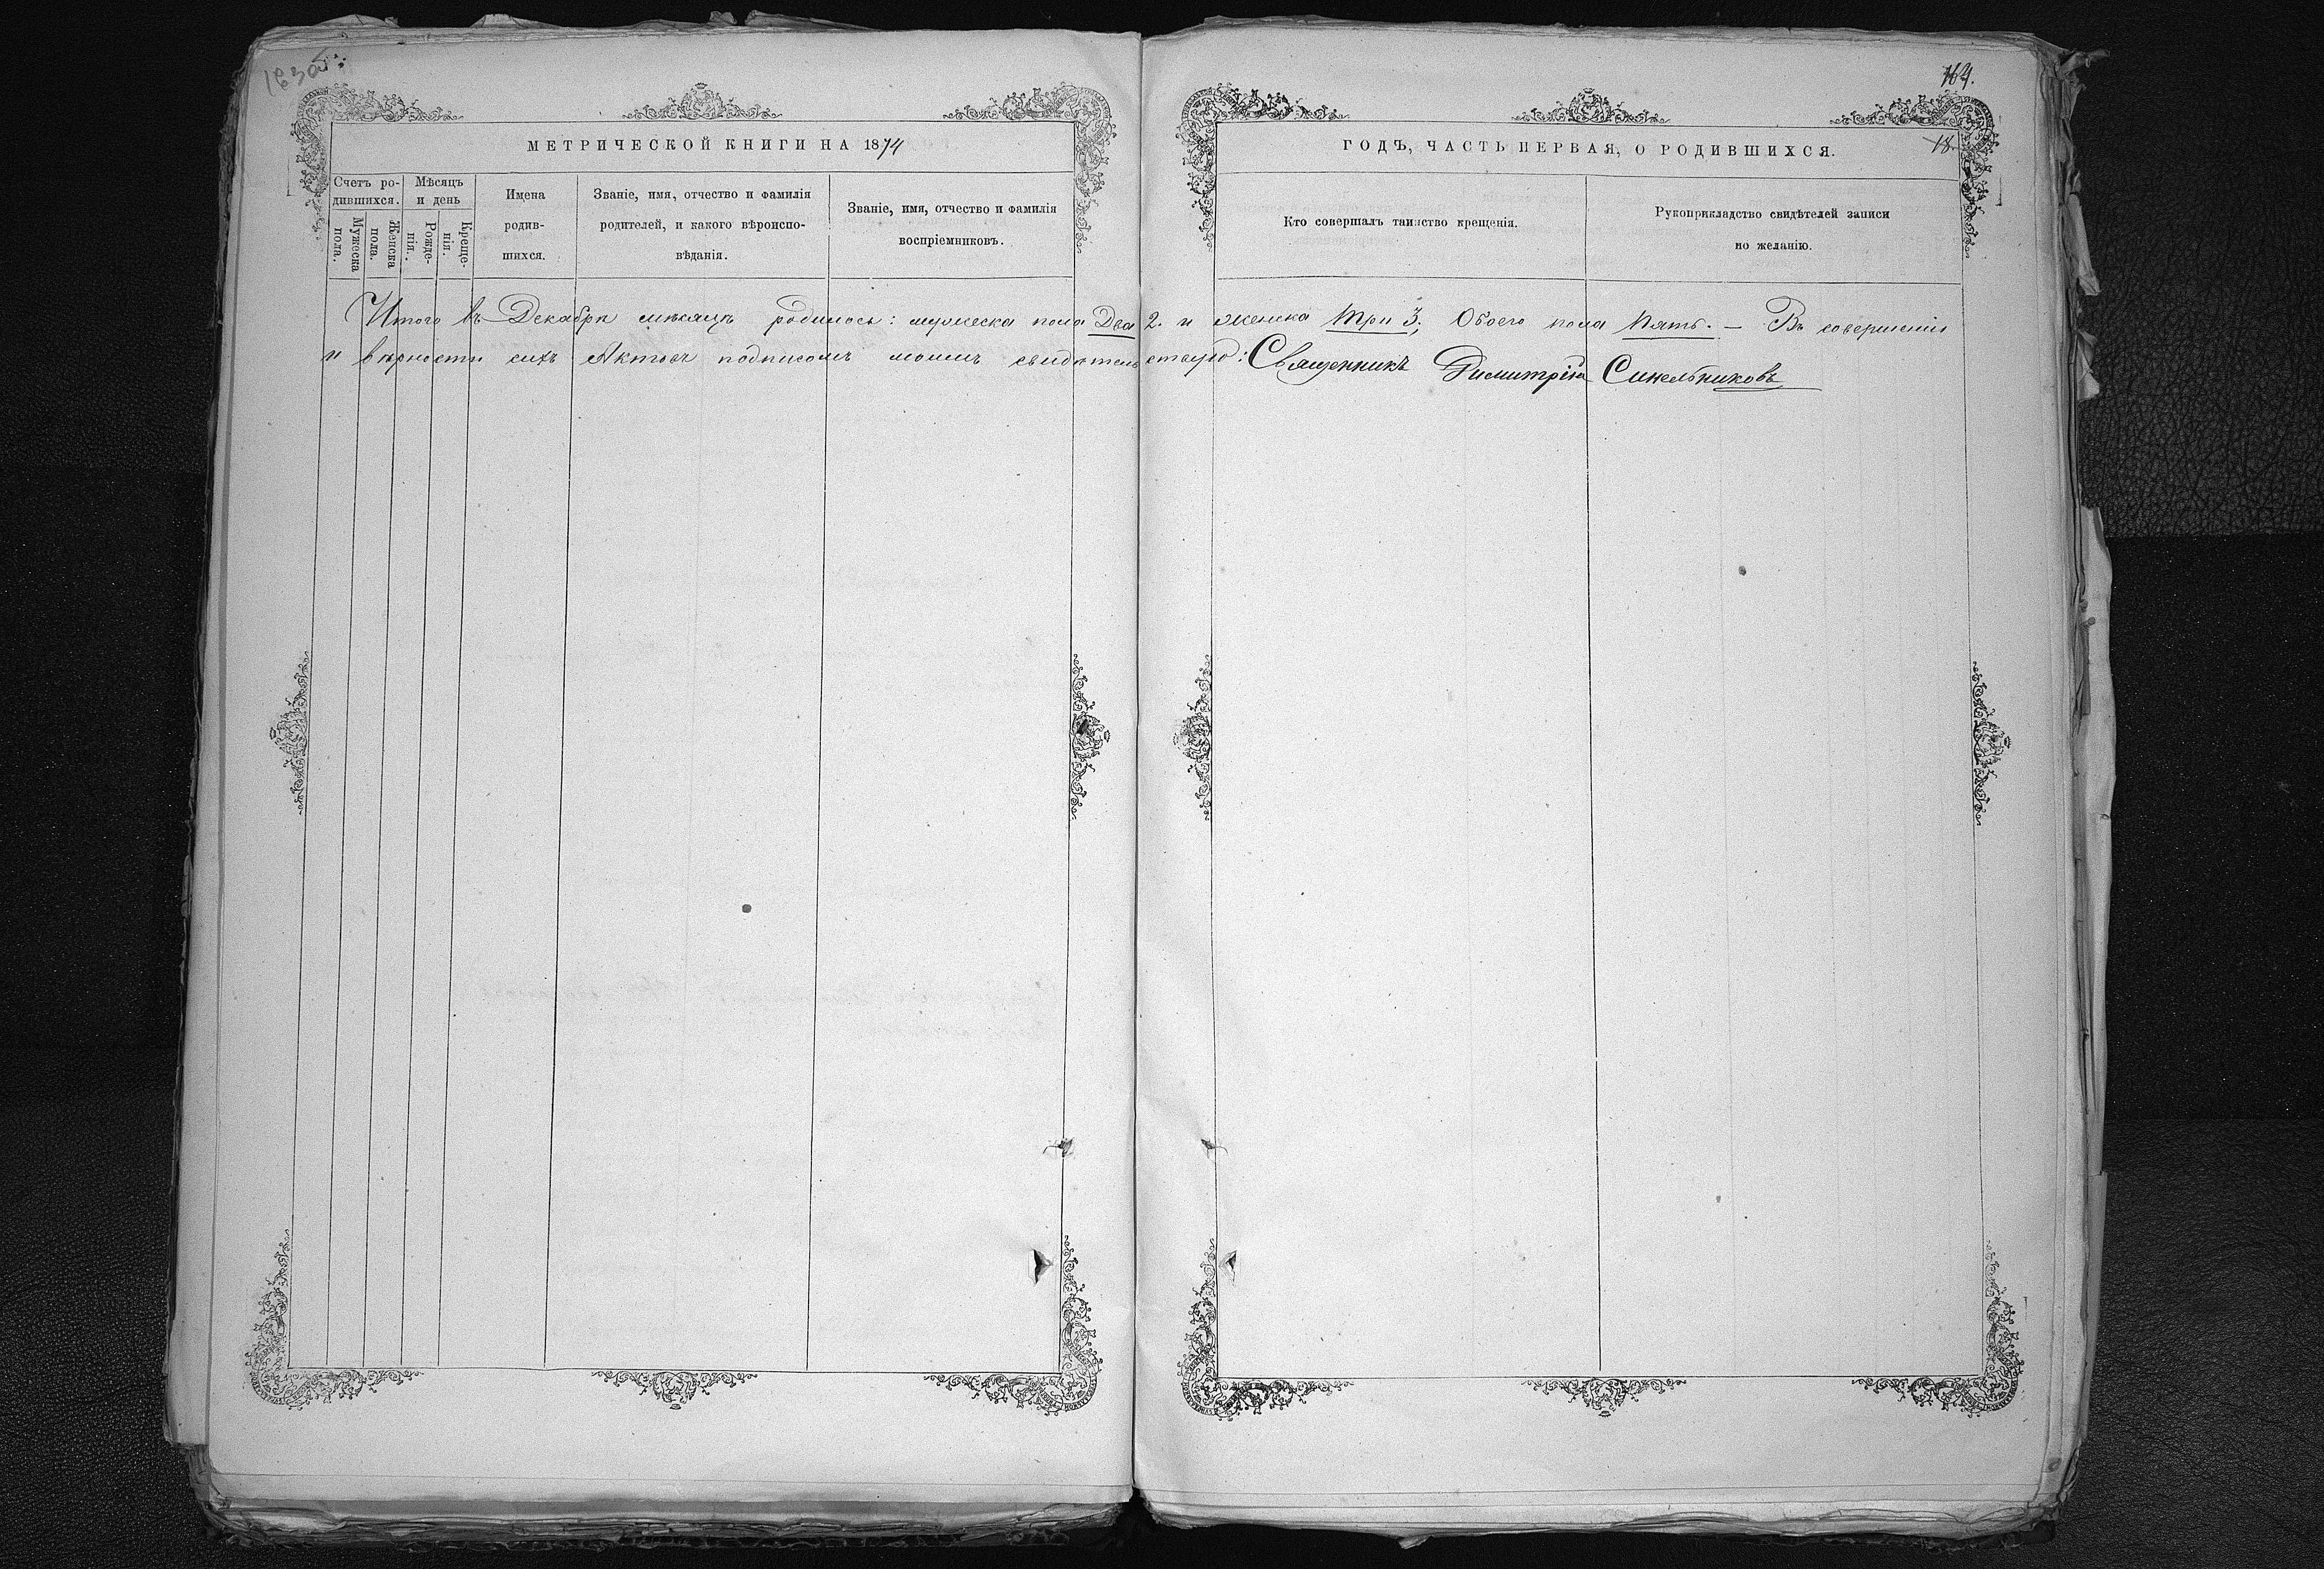 163 об:
164.
18.
МЕТРИЧЕСКОЙ КНИГИ НА 1874
ГОДЪ, ЧАСТЬ ПЕРВАЯ, О РОДИВШИХСЯ.
Счетъ ро-
дившихся.
Мужеска
пола.
Женска
пола.
Мѣсяцъ
и день
Рожде-
нія.
Креще-
нія.
Имена
родив-
шихся.
Званіе, имя, отчество и фамилія
родителей, и какого вѣроиспо-
вѣданія.
Званіе, имя, отчество и фамилія
воспріемниковъ.
Кто совершалъ таинство крещенія.
Рукоприкладство свидѣтелей записи
по желанію.
Итого въ Декабрѣ мѣсяцѣ родилось: мужеска пола Два 2. и женска три 3; Обоего пола Пять. — Въ совершеніи
и вѣрности сихъ Актовъ подписомъ моимъ свидѣтельствую: Священникъ Димитрій Синельниковъ